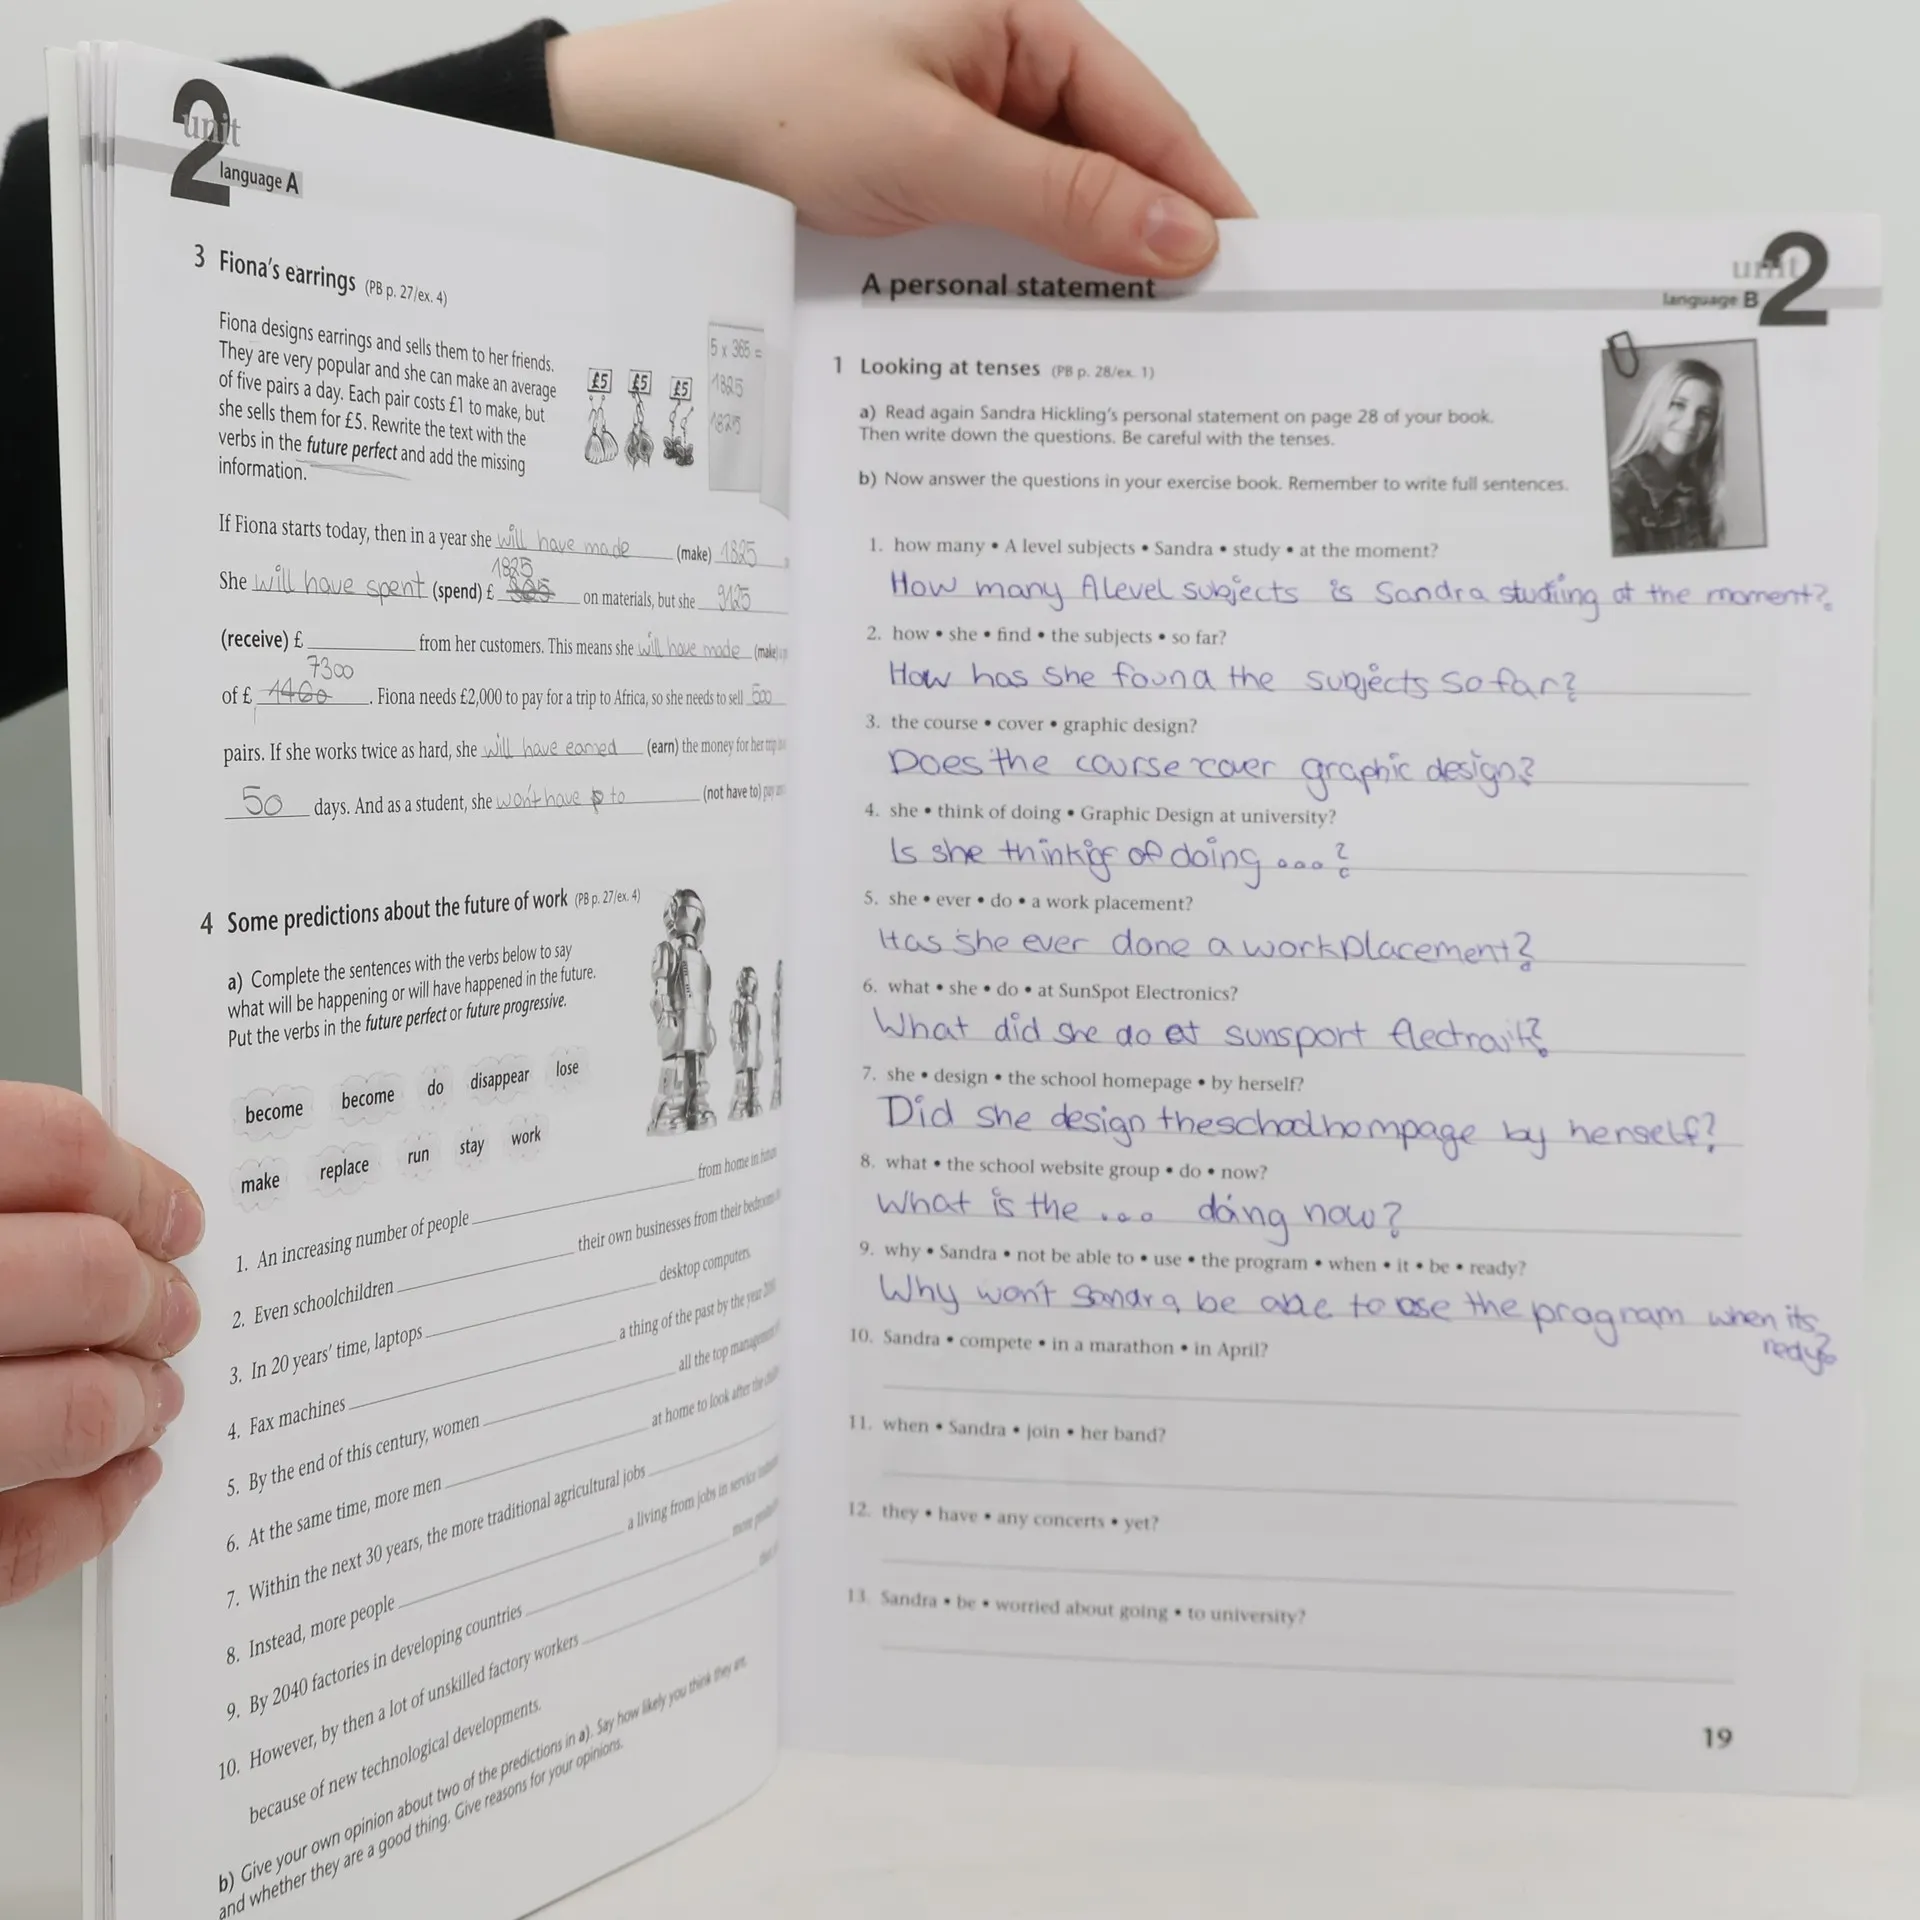 2
unit
language A
3 Fiona's earrings (PB p. 27/ex. 4)
Fiona designs earrings and sells them to her friends.
They are very popular and she can make an average
of five pairs a day. Each pair costs £1 to make, but
she sells them for £5. Rewrite the text with the
verbs in the future perfect and add the missing
information.
£5 £5 £5
5 x 365 =
1825
1825
If Fiona starts today, then in a year she will have made (make) 1825
1825
She will have spent (spend) £ on materials, but she 9125
(receive) £ from her customers. This means she will have made (make)
7300
of £ 1460 . Fiona needs £2,000 to pay for a trip to Africa, so she needs to sell 500
pairs. If she works twice as hard, she will have earned (earn) the money for her trip
50 days. And as a student, she won't have to (not have to) pay
4 Some predictions about the future of work (PB p. 27/ex. 4)
a) Complete the sentences with the verbs below to say
what will be happening or will have happened in the future.
Put the verbs in the future perfect or future progressive.
become become do disappear lose
make replace run stay work
1. An increasing number of people from home in future
2. Even schoolchildren their own businesses from their bedrooms
3. In 20 years' time, laptops desktop computers.
4. Fax machines a thing of the past by the year
5. By the end of this century, women all the top management
6. At the same time, more men at home to look after the
7. Within the next 30 years, the more traditional agricultural jobs
8. Instead, more people a living from jobs in service
9. By 2040 factories in developing countries more
10. However, by then a lot of unskilled factory workers
because of new technological developments.
b) Give your own opinion about two of the predictions in a). Say how likely you think they are,
and whether they are a good thing. Give reasons for your opinions.
A personal statement
unit
2
language B
1 Looking at tenses (PB p. 28/ex. 1)
a) Read again Sandra Hickling's personal statement on page 28 of your book.
Then write down the questions. Be careful with the tenses.
b) Now answer the questions in your exercise book. Remember to write full sentences.
1. how many • A level subjects • Sandra • study • at the moment?
How many A level subjects is Sandra studiing at the moment?
2. how • she • find • the subjects • so far?
How has she found the subjects so far?
3. the course • cover • graphic design?
Does the course cover graphic design?
4. she • think of doing • Graphic Design at university?
Is she of doing ...?
5. she • ever • do • a work placement?
Has she ever done a workplacement?
6. what • she • do • at SunSpot Electronics?
What did she do at sunsport
7. she • design • the school homepage • by herself?
Did she design the school hompage by herself?
8. what • the school website group • do • now?
What is the ... doing now?
9. why • Sandra • not be able to • use • the program • when • it • be • ready?
Why won't Sandra be able to use the program when its
redy?
10. Sandra • compete • in a marathon • in April?
11. when • Sandra • join • her band?
12. they • have • any concerts • yet?
13. Sandra • be • worried about going • to university?
19